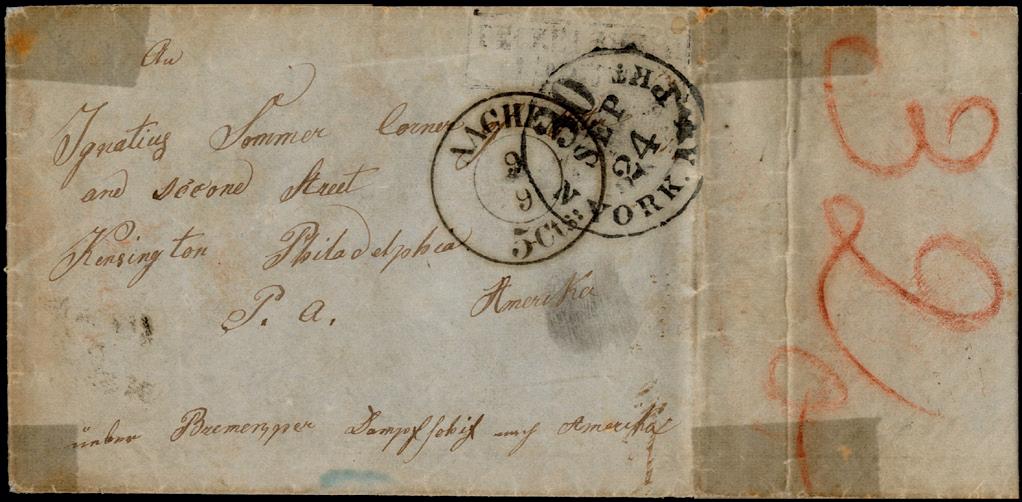 An
Ignatius Sommer Corner
and second Street
Kensington Philadelphea
P. a. Amerika
ünber Bremen, per Dampfschif nach Amerika
AACHEN
9
9
5 Cts:
N. YORK. AM. PKT
SEP
24
30